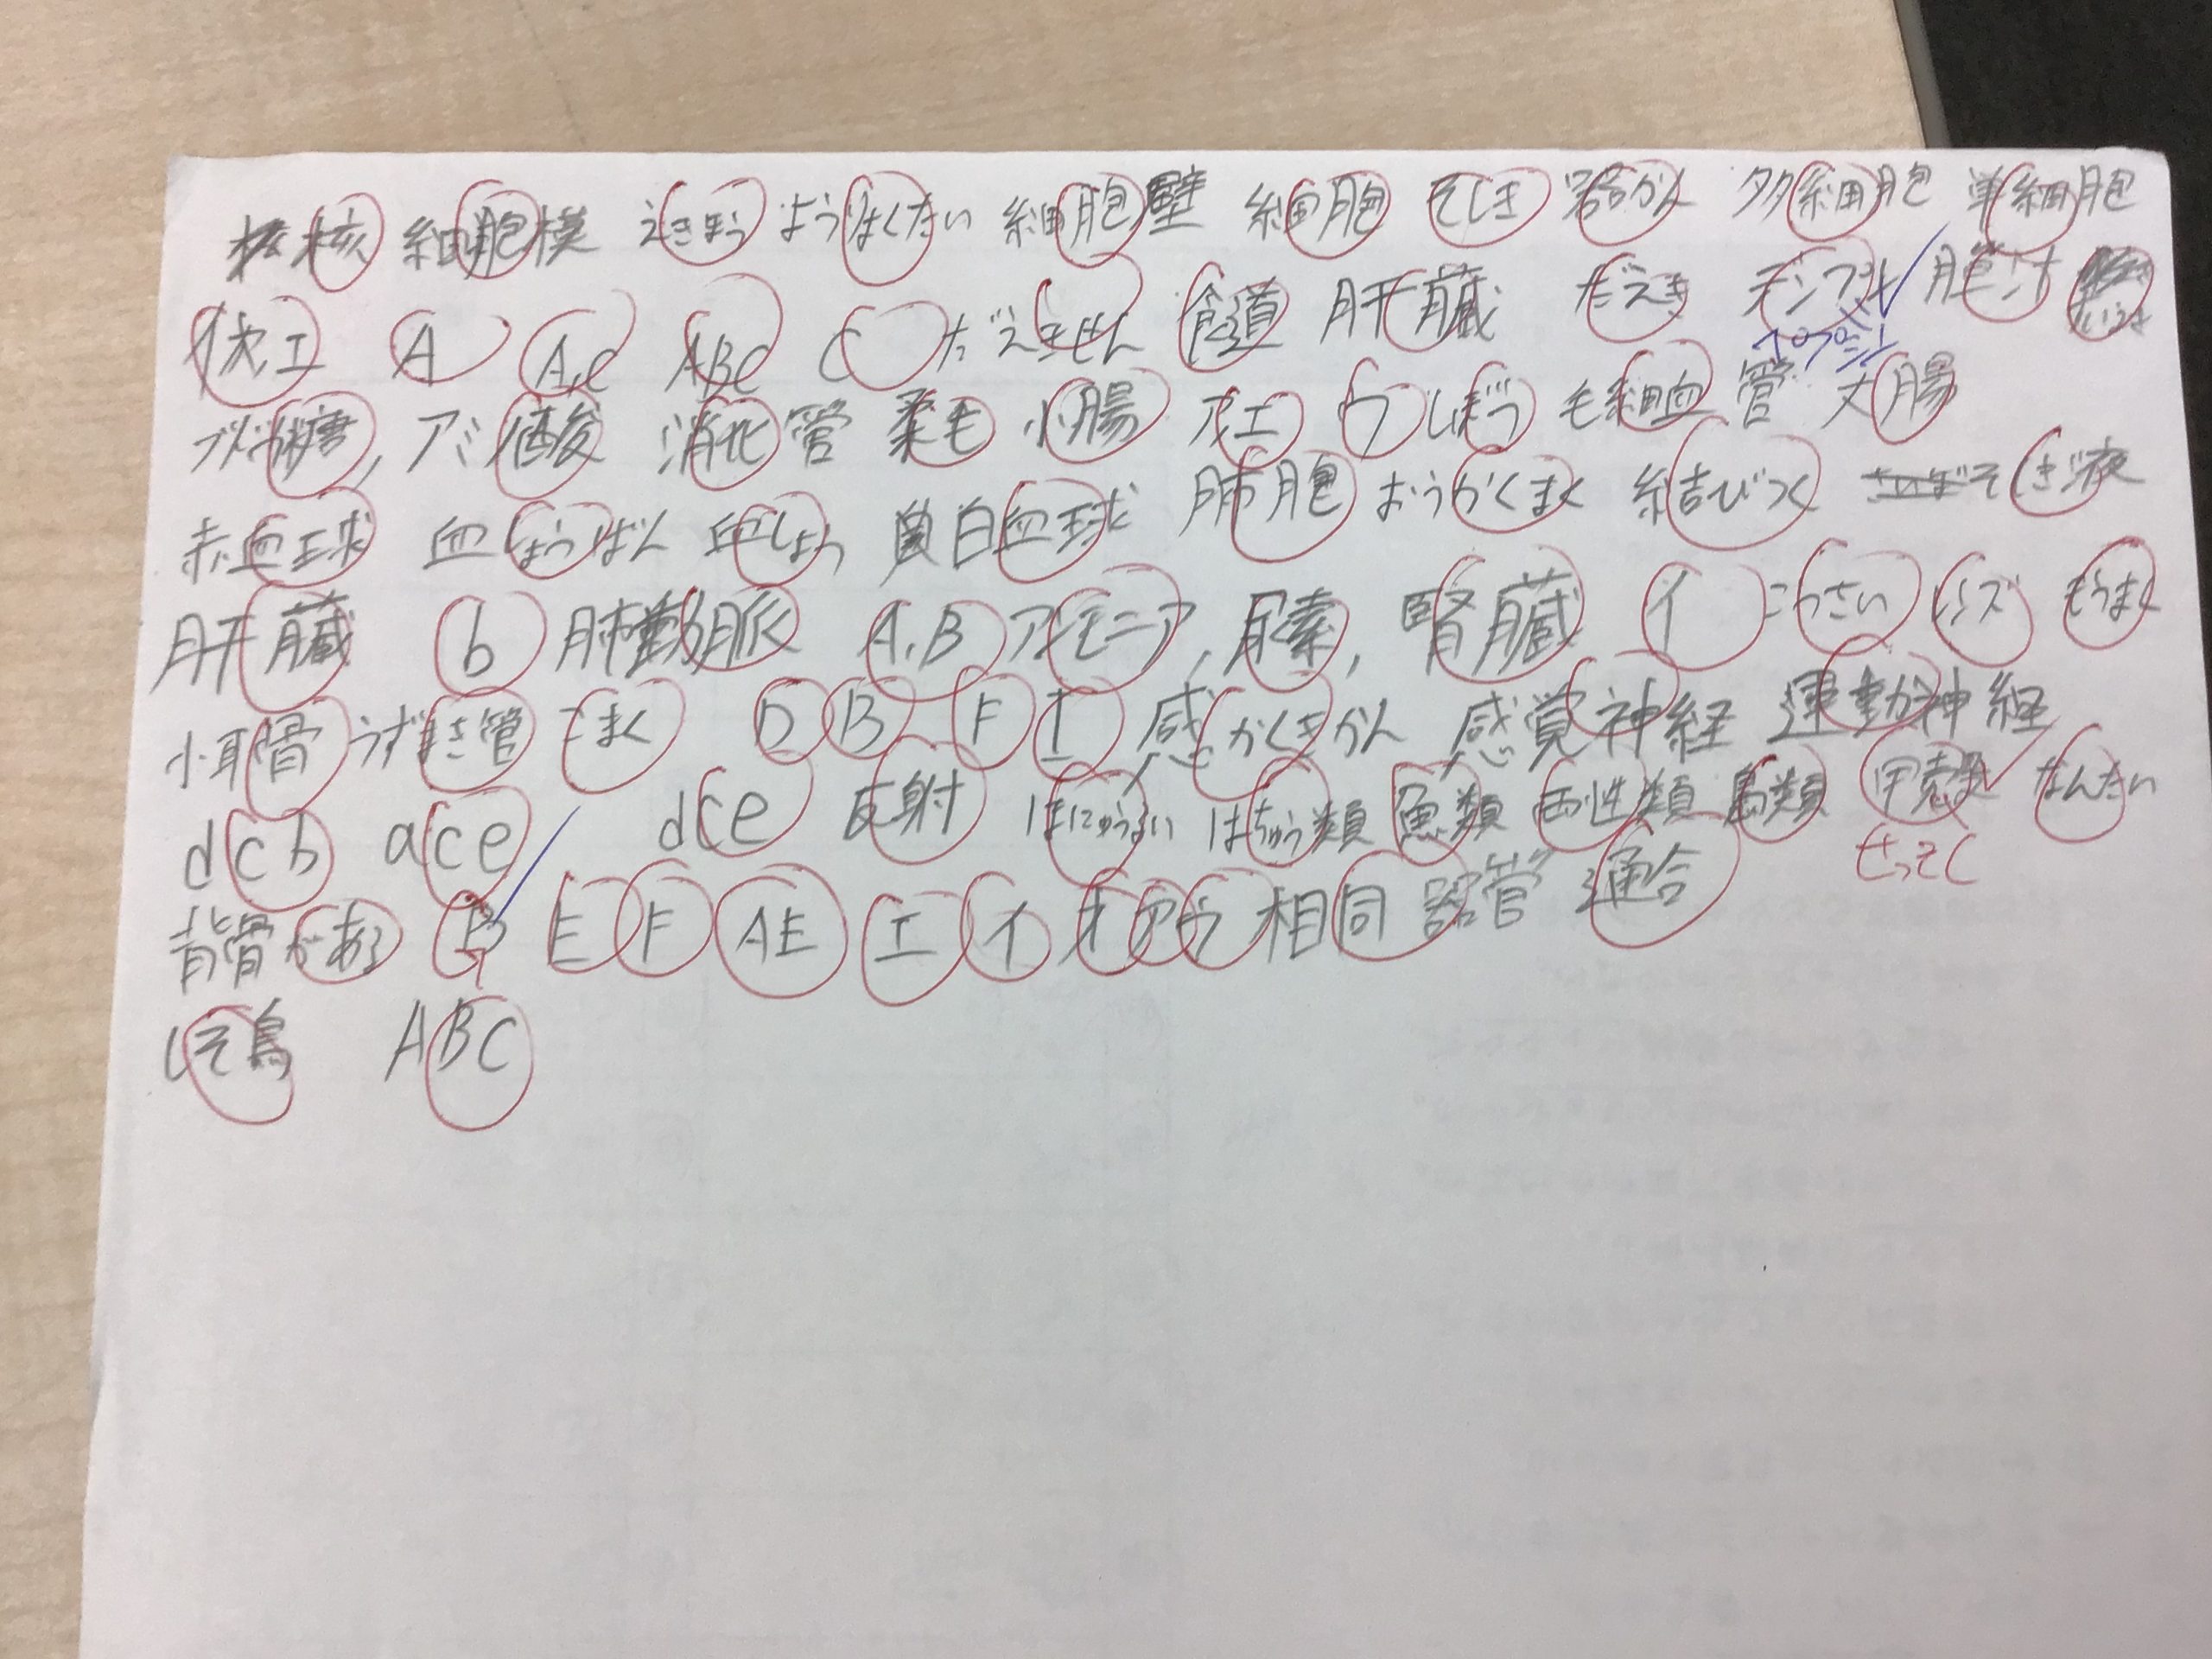 核 細胞模 えきほう ようりょくたい 細胞壁 細胞 そしき 器かん 多細胞 単細胞
A A,C ABC C だえきせん 食道 肝臓 だえき デンプン 胆汁
ペプシン
ブドウ糖, アミノ酸 消化管 柔毛 小腸 アエ ウ しぼう 毛細血管 大腸
赤血球 血しょうばん 血しょう 白血球 肺胞 おうかくまく 結びつく そしき液
肝臓 b 肺動脈 A,B アンモニア, 尿素, 腎臓 イ こうさい レンズ もうまく
小耳骨 うずまき管 こまく D B F I 感かくきかん 感覚神経 運動神経
dcb ace dce 反射 ほにゅうるい はちゅう類 魚類 両性類 鳥類 甲殻 なんたい
せっそく
背骨がある E F AE エ イ オ ア ウ 相同器管 適合
しそ鳥 ABC